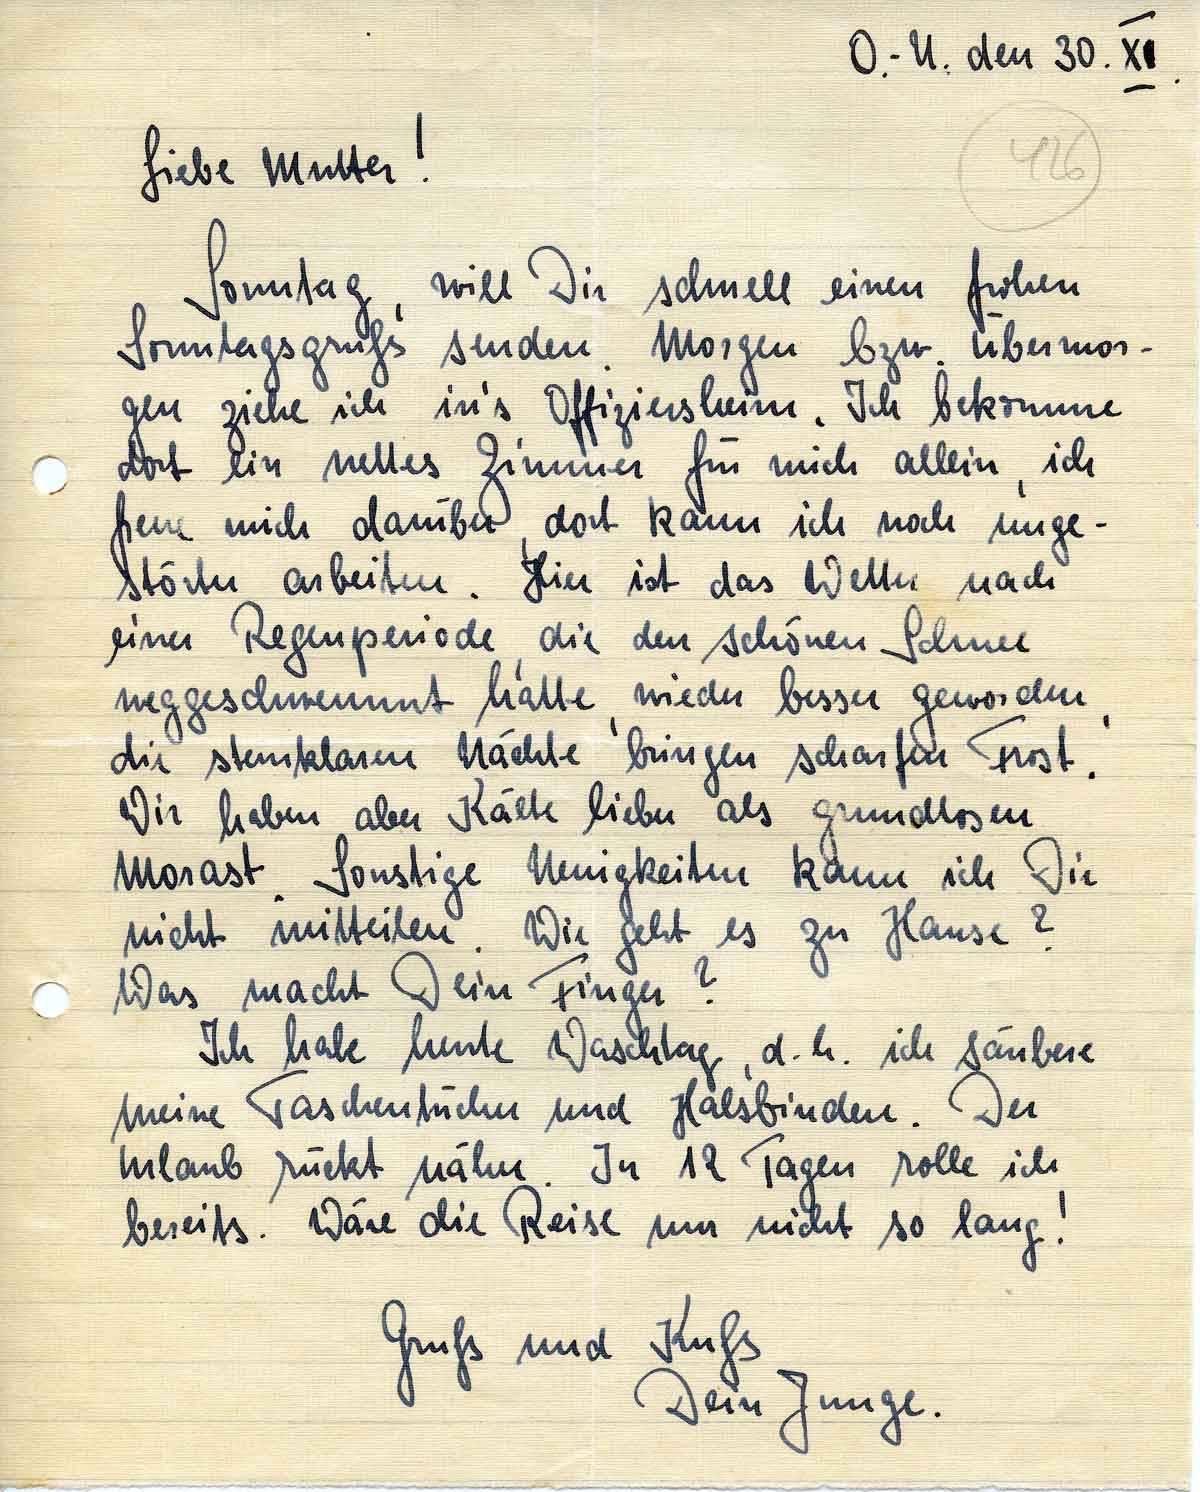 O.-U. den 30. XI.
426
Liebe Mutter!
Sonntag, will Dir schnell einen frohen
Sonntagsgruß senden. Morgen bzw. übermor-
gen ziehe ich in's Offiziersheim. Ich bekomme
dort ein nettes Zimmer für mich allein, ich
freue mich darüber, dort kann ich noch unge-
störter arbeiten. Hier ist das Wetter nach
einer Regenperiode, die den schönen Schnee
weggeschwemmt hatte, wieder besser geworden,
die sternklaren Nächte bringen scharfen Frost.
Wir haben aber Kälte lieber als grundlosen
Morast. Sonstige Neuigkeiten kann ich Dir
nicht mitteilen. Wie geht es zu Hause?
Was macht Dein Finger?
Ich habe heute Waschtag, d.h. ich säubere
meine Taschentücher und Halsbinden. Der
Urlaub rückt näher. In 12 Tagen rolle ich
bereits. Wäre die Reise nur nicht so lang!
Gruß und Kuß
Dein Junge.